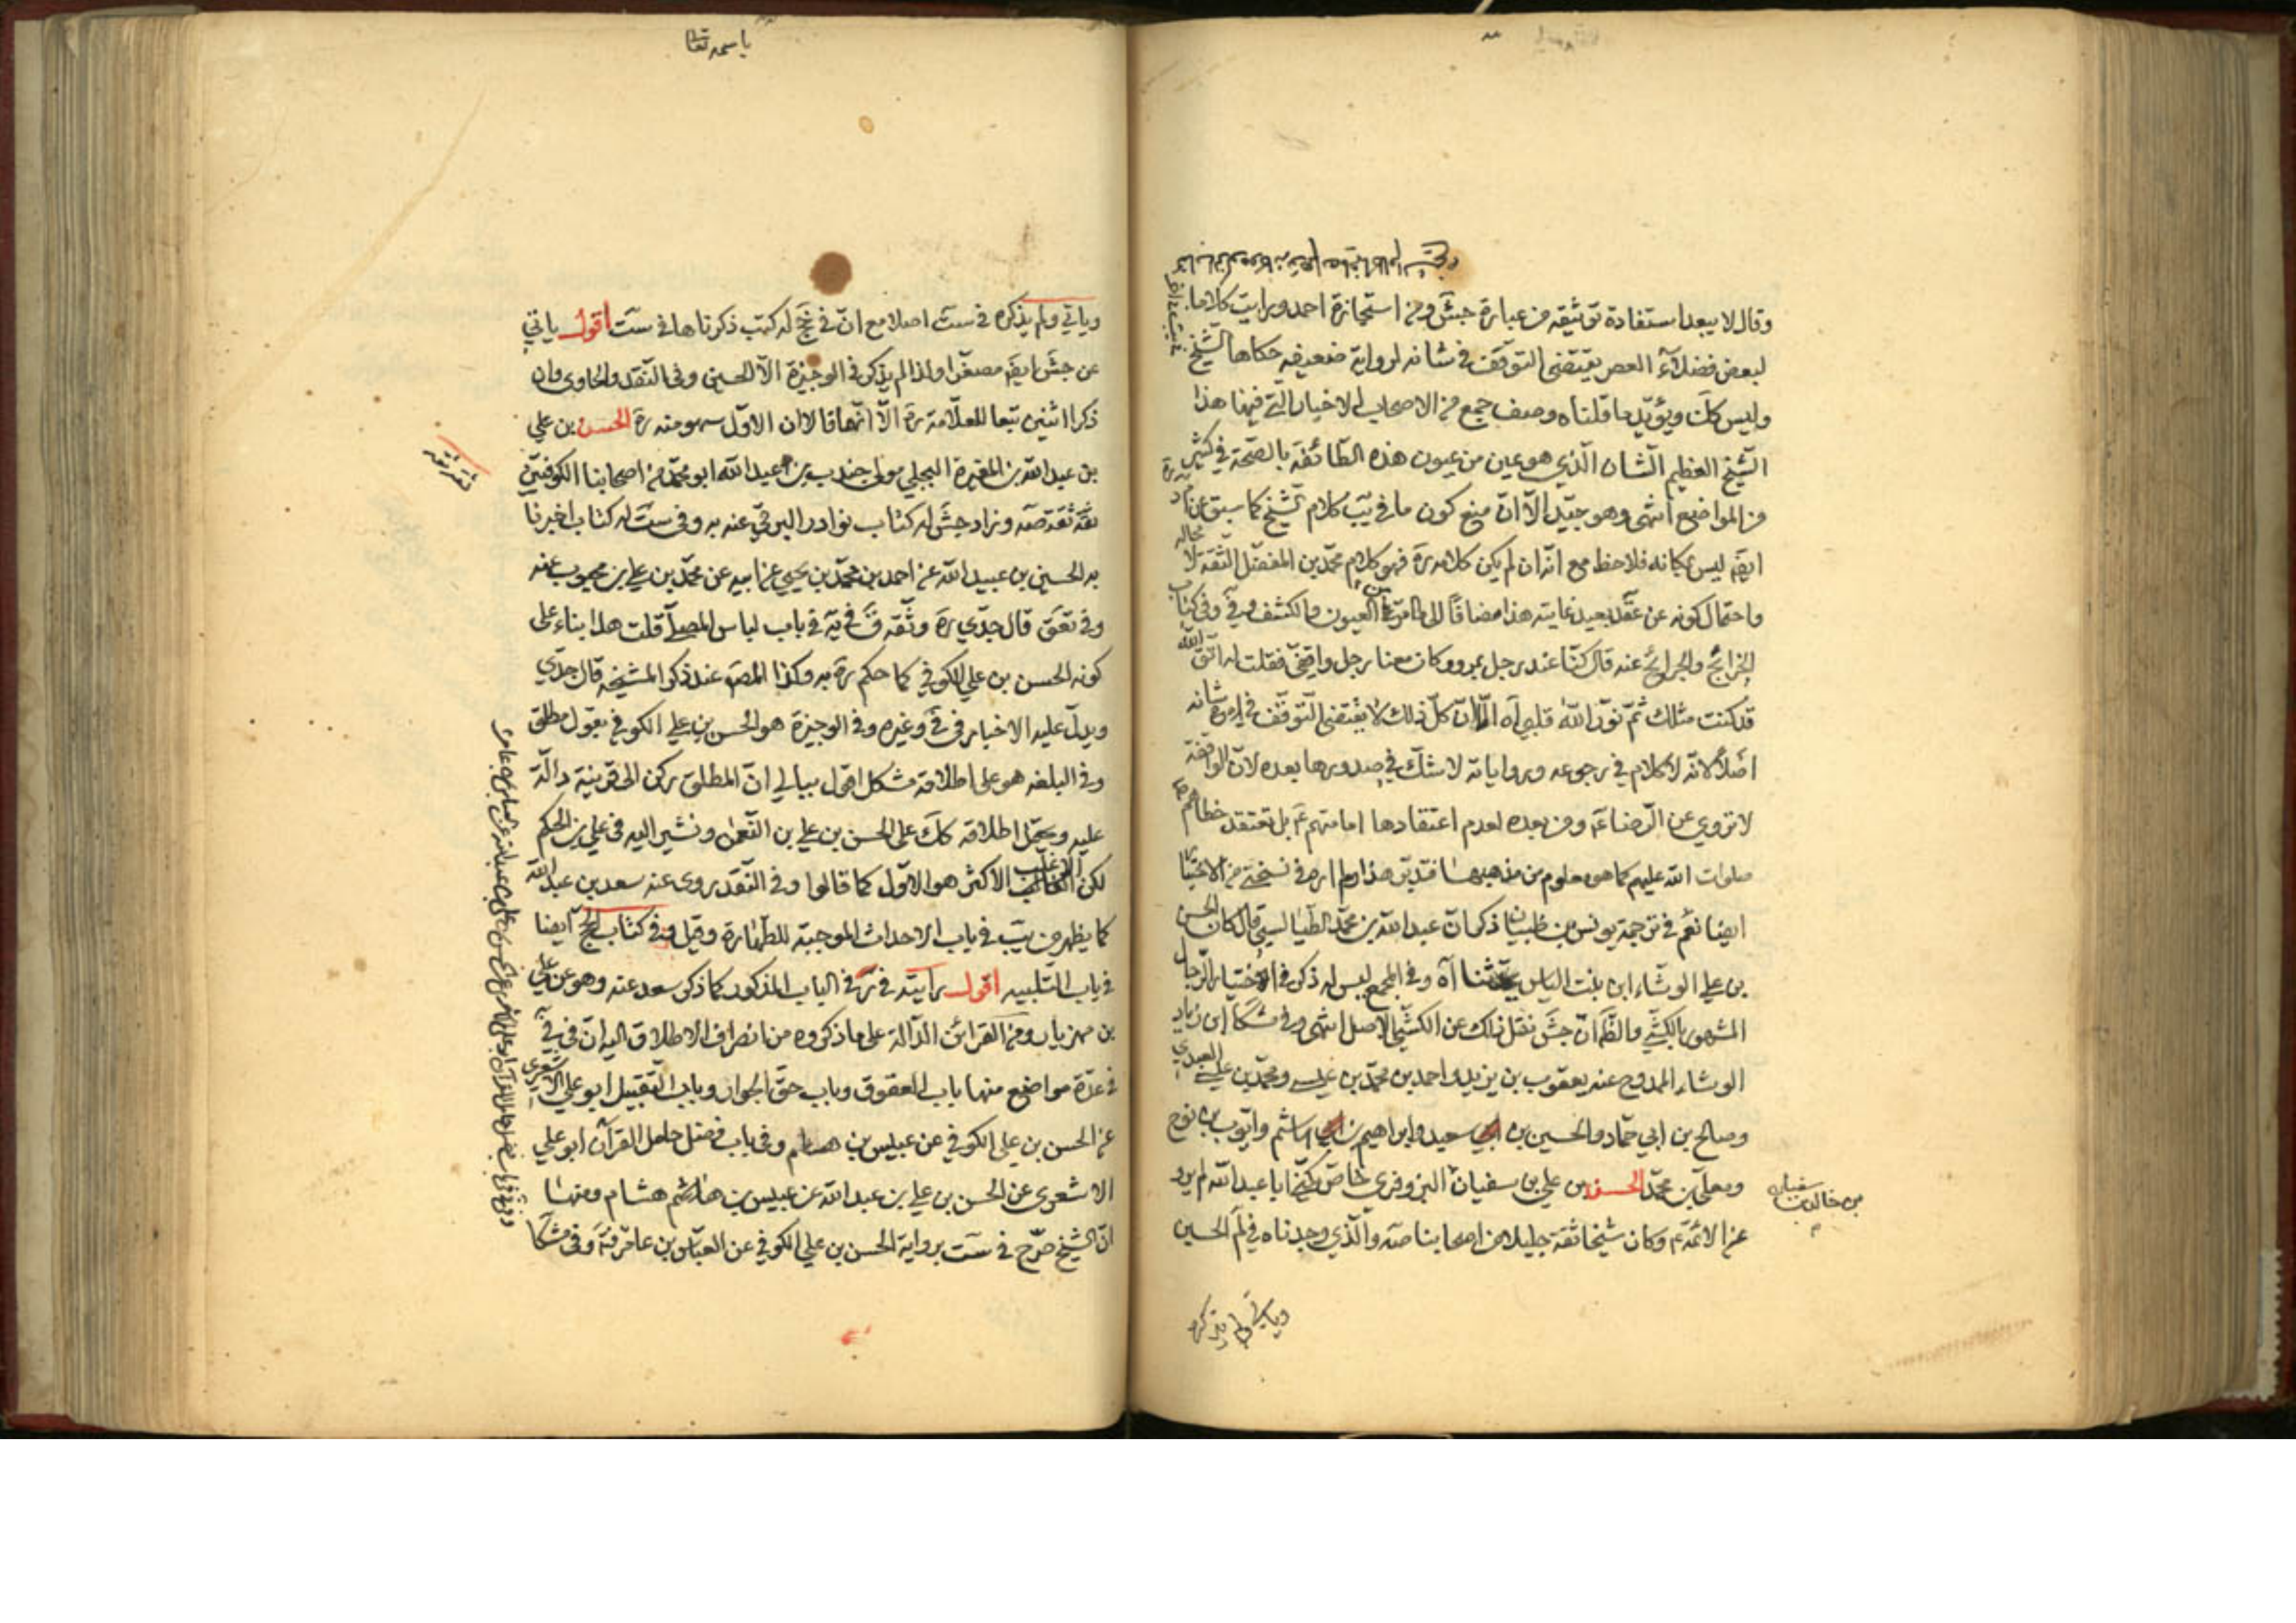 وقال لا يبعد استفادة توثيقه من عبارة جش ومن استجازة احمد ورايت كلاما
لبعض فضلآء العصر يقتضى التوقف في شانه لرواية ضعيفه حكاها الشيخ
وليس كك ويؤيد ما قلناه وصف جمع من الاصحاب الاخبار التي فيها هذا
الشيخ العظيم الشان الذي هو عين من عيون هذه الطائفة بالصحة في كثير
من المواضع انتهى وهو جيد الا ان منع كون ما في يب كلام الشيخ كما سبق عن
ايضا ليس بمكانه فلاحظ مع انه ان لم يكن كلامه ره فهو كلام محمد بن المفضل الثقة لا محاله
واحتمال كونه عن عقد بعيد غايته هذا مضافا الى ما مر في العيون والكشف وفي وفي كتاب
الخرائج والجرائح عنه قال كنا عند رجل بمرو وكان معنا رجل واقفي فقلت له اتق الله
قد كنت مثلك ثم نور الله قلبي اه الا ان كل ذلك لا يقتضى التوقف في شانه
اصلا لانه لا كلام في رجوعه ورواياته لا شك في صدورها بعده لان الواقفة
لا تروي عن الرضا ع ومن بعده لعدم اعتقادها امامتهم ع بل تعتقد خطاهم
صلوات الله عليهم كما هو معلوم من مذهبها فتدبر هذا ولم اره في نسختي من الاختيار
ايضا نعم في ترجمة يونس بن ظبيان ذكر ان عبد الله بن محمد الطيالسي قال كان الحسن
بن علي الوشاء ابن بنت الياس يحدثنا اه وفي المجمع ليس له ذكر في اختيار الرجال
المشهور بالكشي والظ ان جش نقل ذلك عن الكشي الاصل انتهى وفي مشكا ابن زياد
الوشاء الممدوح عنه يعقوب بن يزيد واحمد بن محمد بن عيسى ومحمد بن عيسى العبيدي
وصالح بن ابي حماد والحسين بن سعيد وابراهيم بن هاشم وايوب بن نوح
ومعلى بن محمد الحسن بن علي بن سفيان البزوفري خاص يكنى ابا عبد الله لم يرو
بن خالد بن سفيان
عن الائمة ع وكان شيخا ثقة جليلا من اصحابنا صه والذي وجدناه في لم الحسين
وياتي ولم يذكره
باسمه تعالى
وياتي ولم يذكره في ست اصلا مع ان في نخ له كتب ذكرناها في ست اقول ياتي
عن جش ايض مصغرا ولذا لم يذكر في الوجيزة الا الحسين وفي النقد والحاوى وان
ذكرا اثنين تبعا للعلامة ره الا انهما قالا ان الاول سهو منه ره الحسن بن علي
بن عبد الله بن المغيرة البجلي مولى جندب بن عبد الله ابو محمد من اصحابنا الكوفيين
ثقة ثقة
ثقة ثقة صه وزاد جش له كتاب نوادر البرقي عنه به وفي ست له كتاب اخبرنا
به الحسين بن عبيد الله عن احمد بن محمد بن يحيى عن ابيه عن محمد بن علي بن محبوب عنه
وفي تعق قال جدي ره وثقه ق في يه في باب لباس المصلي قلت هذا بناء على
كونه الحسن بن علي الكوفي كما حكم ره به وكذا المص عند ذكر المشيخة قال جدي
ويدل عليه الاخبار في في وغيره وفي الوجيزة هو الحسن بن علي الكوفي بقول مطلق
وفي البلغة هو على اطلاقه مشكل اقول ببالي ان المطلق يركن الى قرينة دالة
عليه ويحتمل اطلاقه كك على الحسن بن علي بن النعمن ونشير اليه في علي بن الحكم
لكن الغالب الاكثر هو الاول كما قالوا وفي النقد روى عنه سعد بن عبد الله
كما يظهر من يب في باب الاحداث الموجبة للطهارة وقيل وفي كتاب الحج ايضا
في باب التلبيه اقول رايته في في الباب المذكور كما ذكر سعد عنه وهو عن علي
بن مهزيار ومن القرائن الدالة على ما ذكروه من انصراف الاطلاق اليه ان في في
في عدة مواضع منها باب العقوق وباب حق الجوار وباب التقبيل ابو علي الاشعري
عن الحسن بن علي الكوفي عن عبيس بن هشام وفي باب فضل حامل القران ابو علي
الاشعرى عن الحسن بن علي بن عبد الله عن عبيس بن هشام ومنها
ان الشيخ صرح في ست برواية الحسن بن علي الكوفي عن العباس بن عامر وفي مشكا